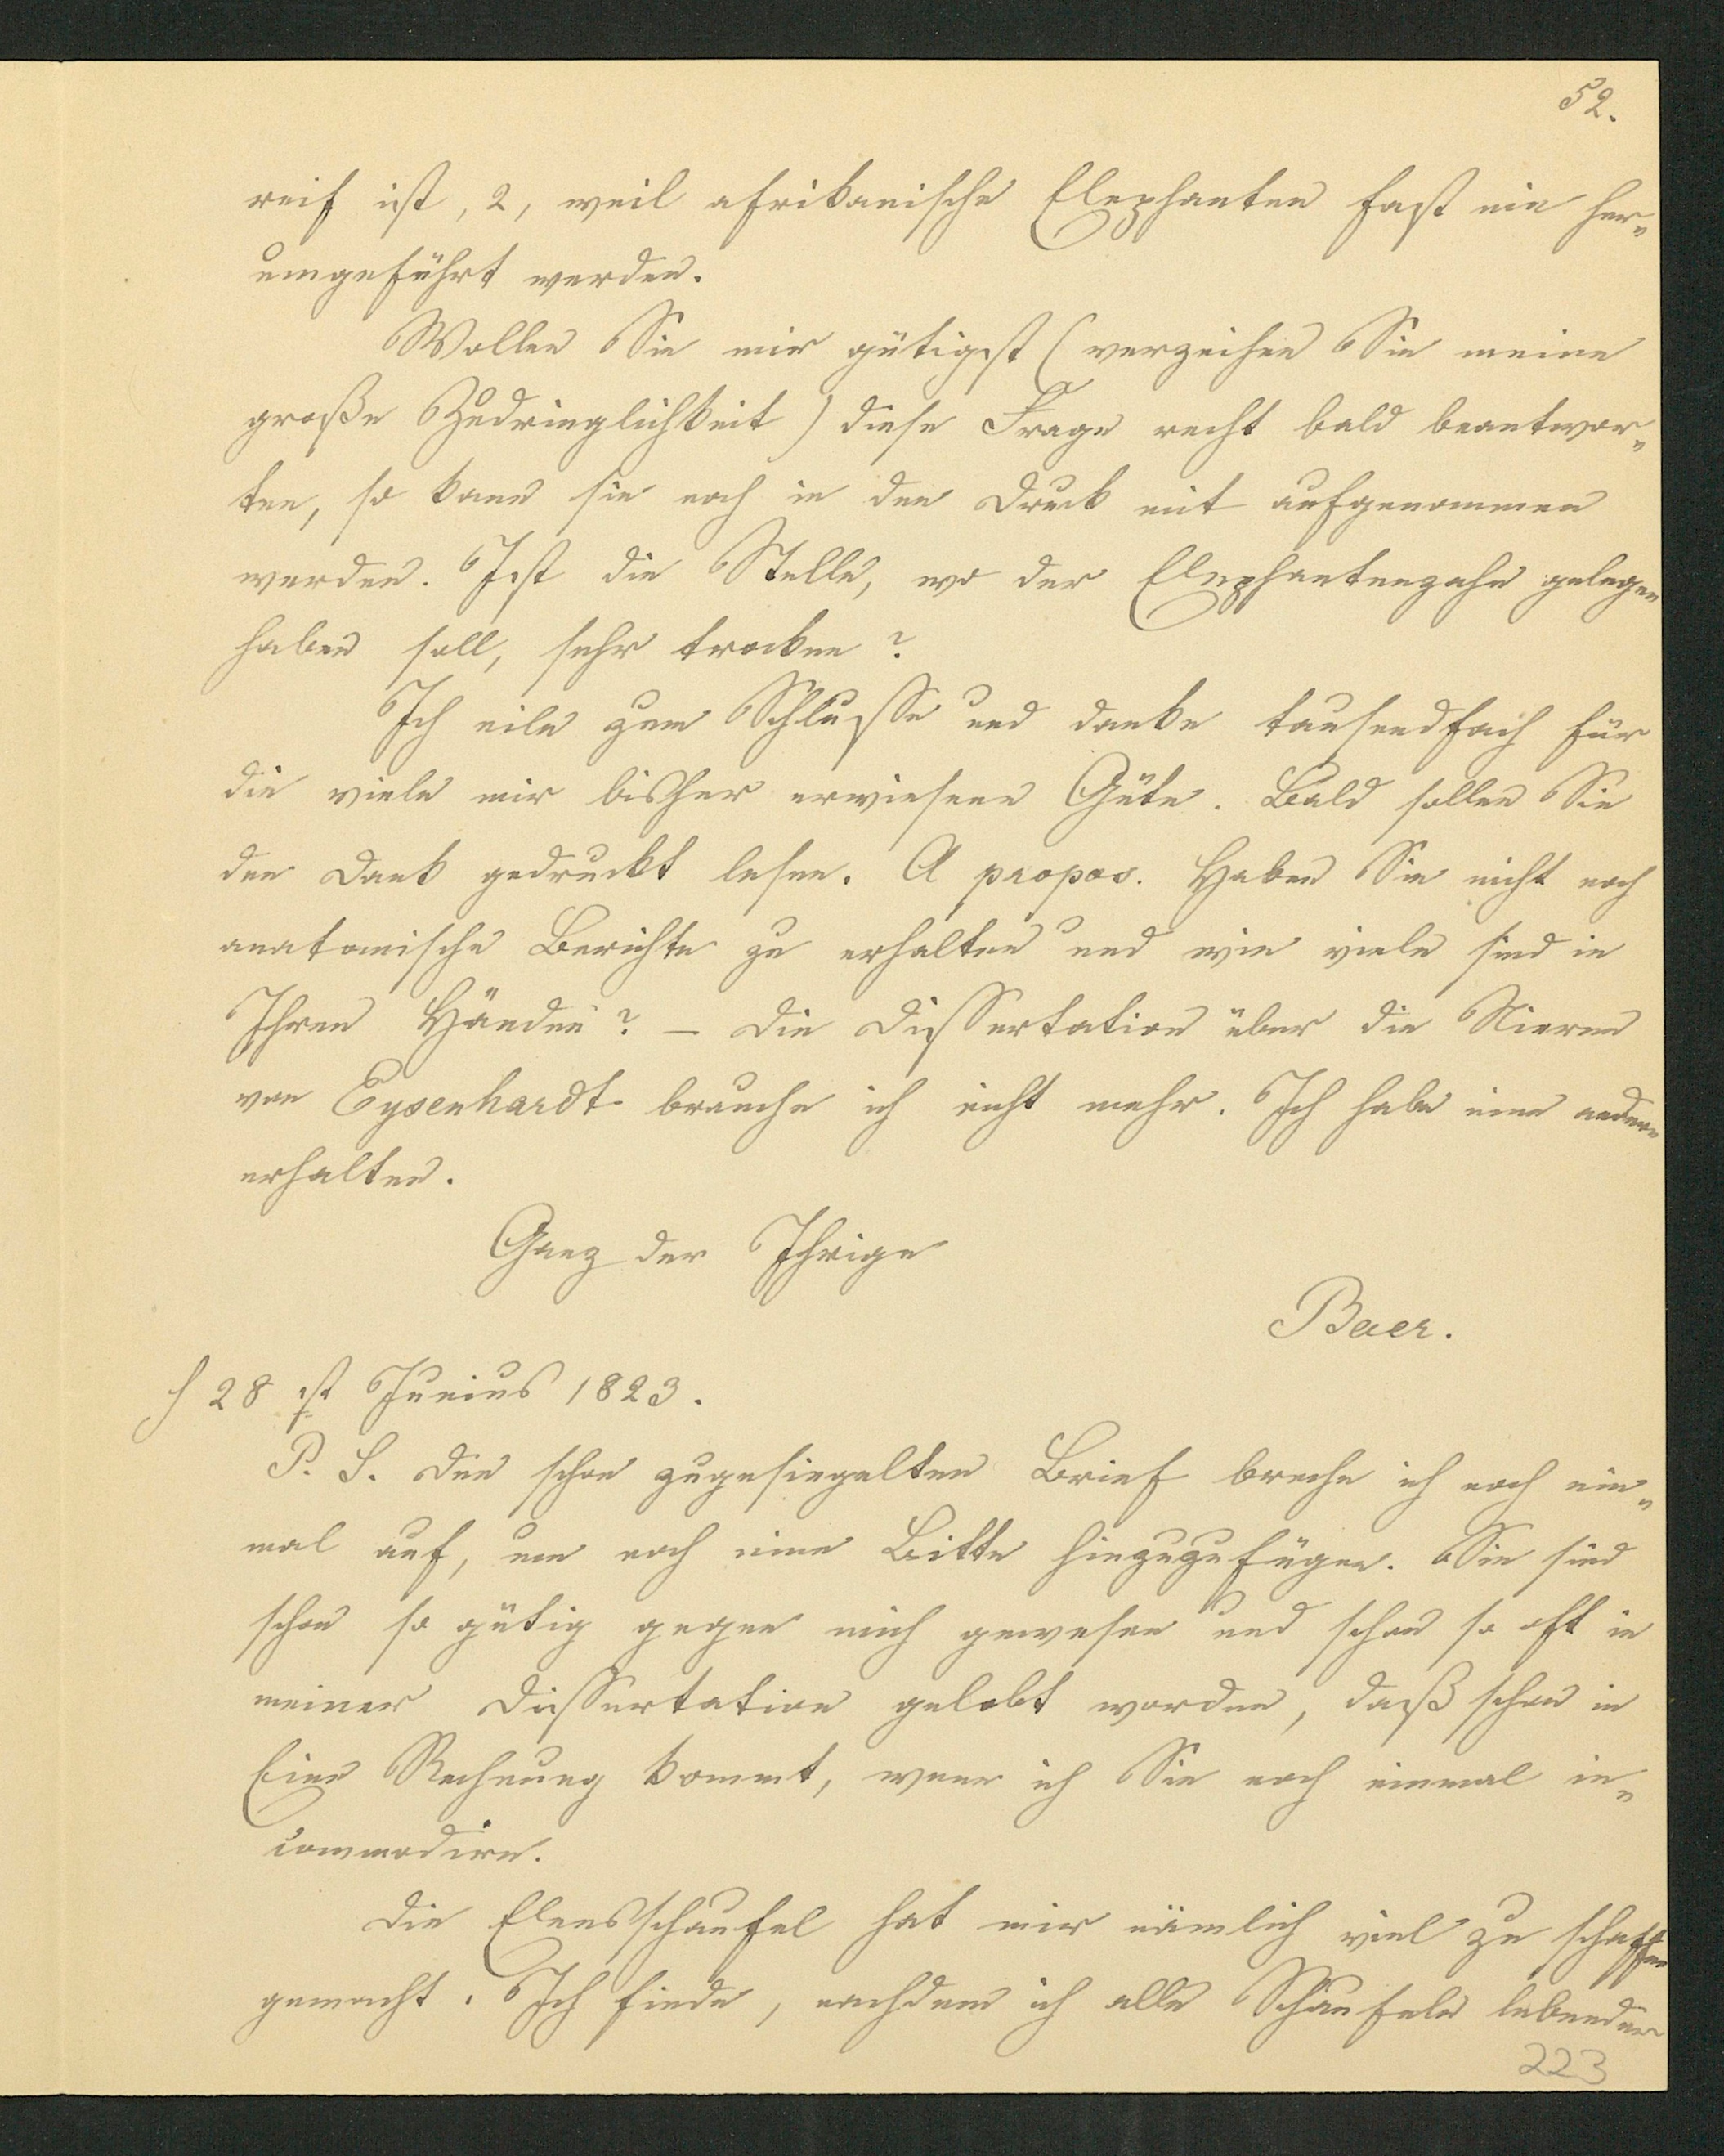 52.
reif ist, 2, weil afrikanische Elephanten fast nie her-
umgeführt werden.
Wollen Sie mir gütigst (verzeihen Sie meine
große Zudringlichkeit) diese Frage recht bald beantwor-
ten, so kann sie noch in den Druck mit aufgenommen
werden. Ist die Stelle, wo der Elephantenzahn gelegen
haben soll, sehr trocken?
Ich eile zum Schlusse und danke tausendfach für
die viele mir bisher erwiesene Güte. Bald sollen Sie
den Dank gedruckt lesen. A propos. Haben Sie nicht noch
anatomische Berichte zu erhalten und wie viele sind in
Ihren Händen? – Die Dissertation über die Nieren
von Eysenhardt brauche ich nicht mehr. Ich habe eine andere
erhalten.
Ganz der Ihrige
Baer.
28 st Junius 1823.
P. S. Den schon zugesiegelten Brief breche ich noch ein-
mal auf, um noch eine Bitte hinzuzufügen. Sie sind
schon so gütig gegen mich gewesen und schon so oft in
meiner Dissertation gelobt worden, daß schon in
Eine Rechnung kommt, wenn ich Sie noch einmal in-
commodire.
Die Elensschaufel hat mir nämlich viel zu schaffen
gemacht. Ich finde, nachdem ich alle Schaufeln lebender
223